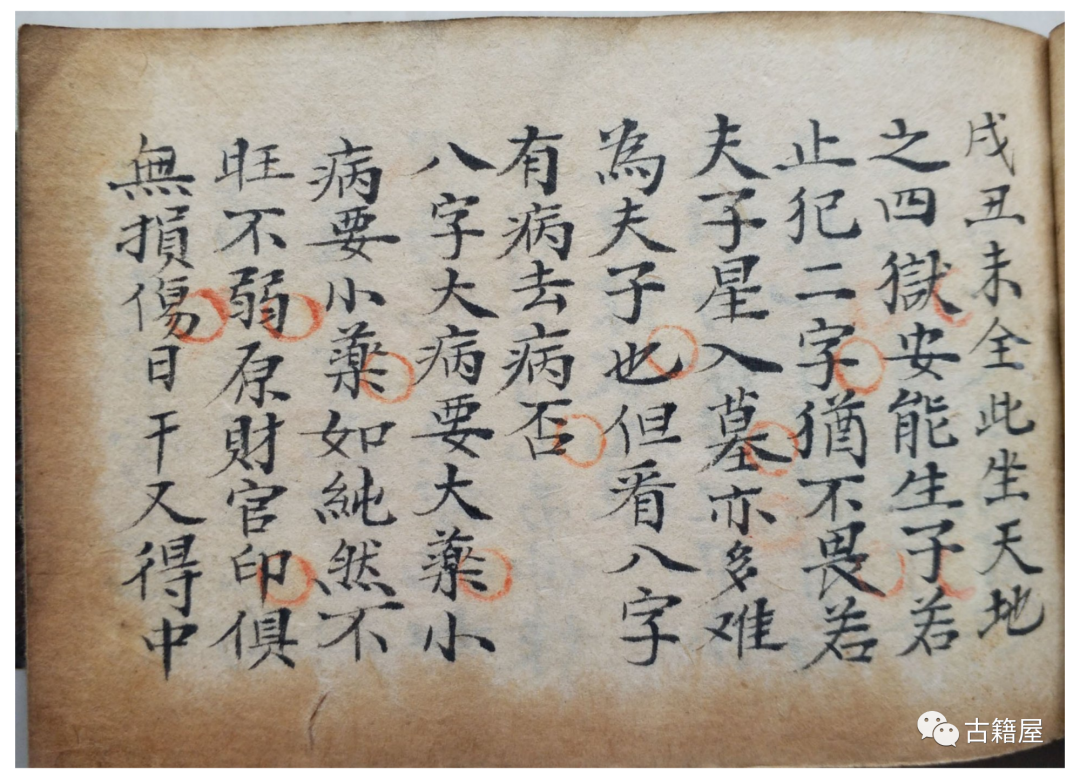 戌丑未全此坐天地
之四獄安能生子若
止犯二字猶不畏若
夫子星入墓亦多难
為夫子也但看八字
有病去病否
八字大病要大藥小
病要小藥如純然不
旺不弱原財官印俱
無損傷日干又得中
古籍屋